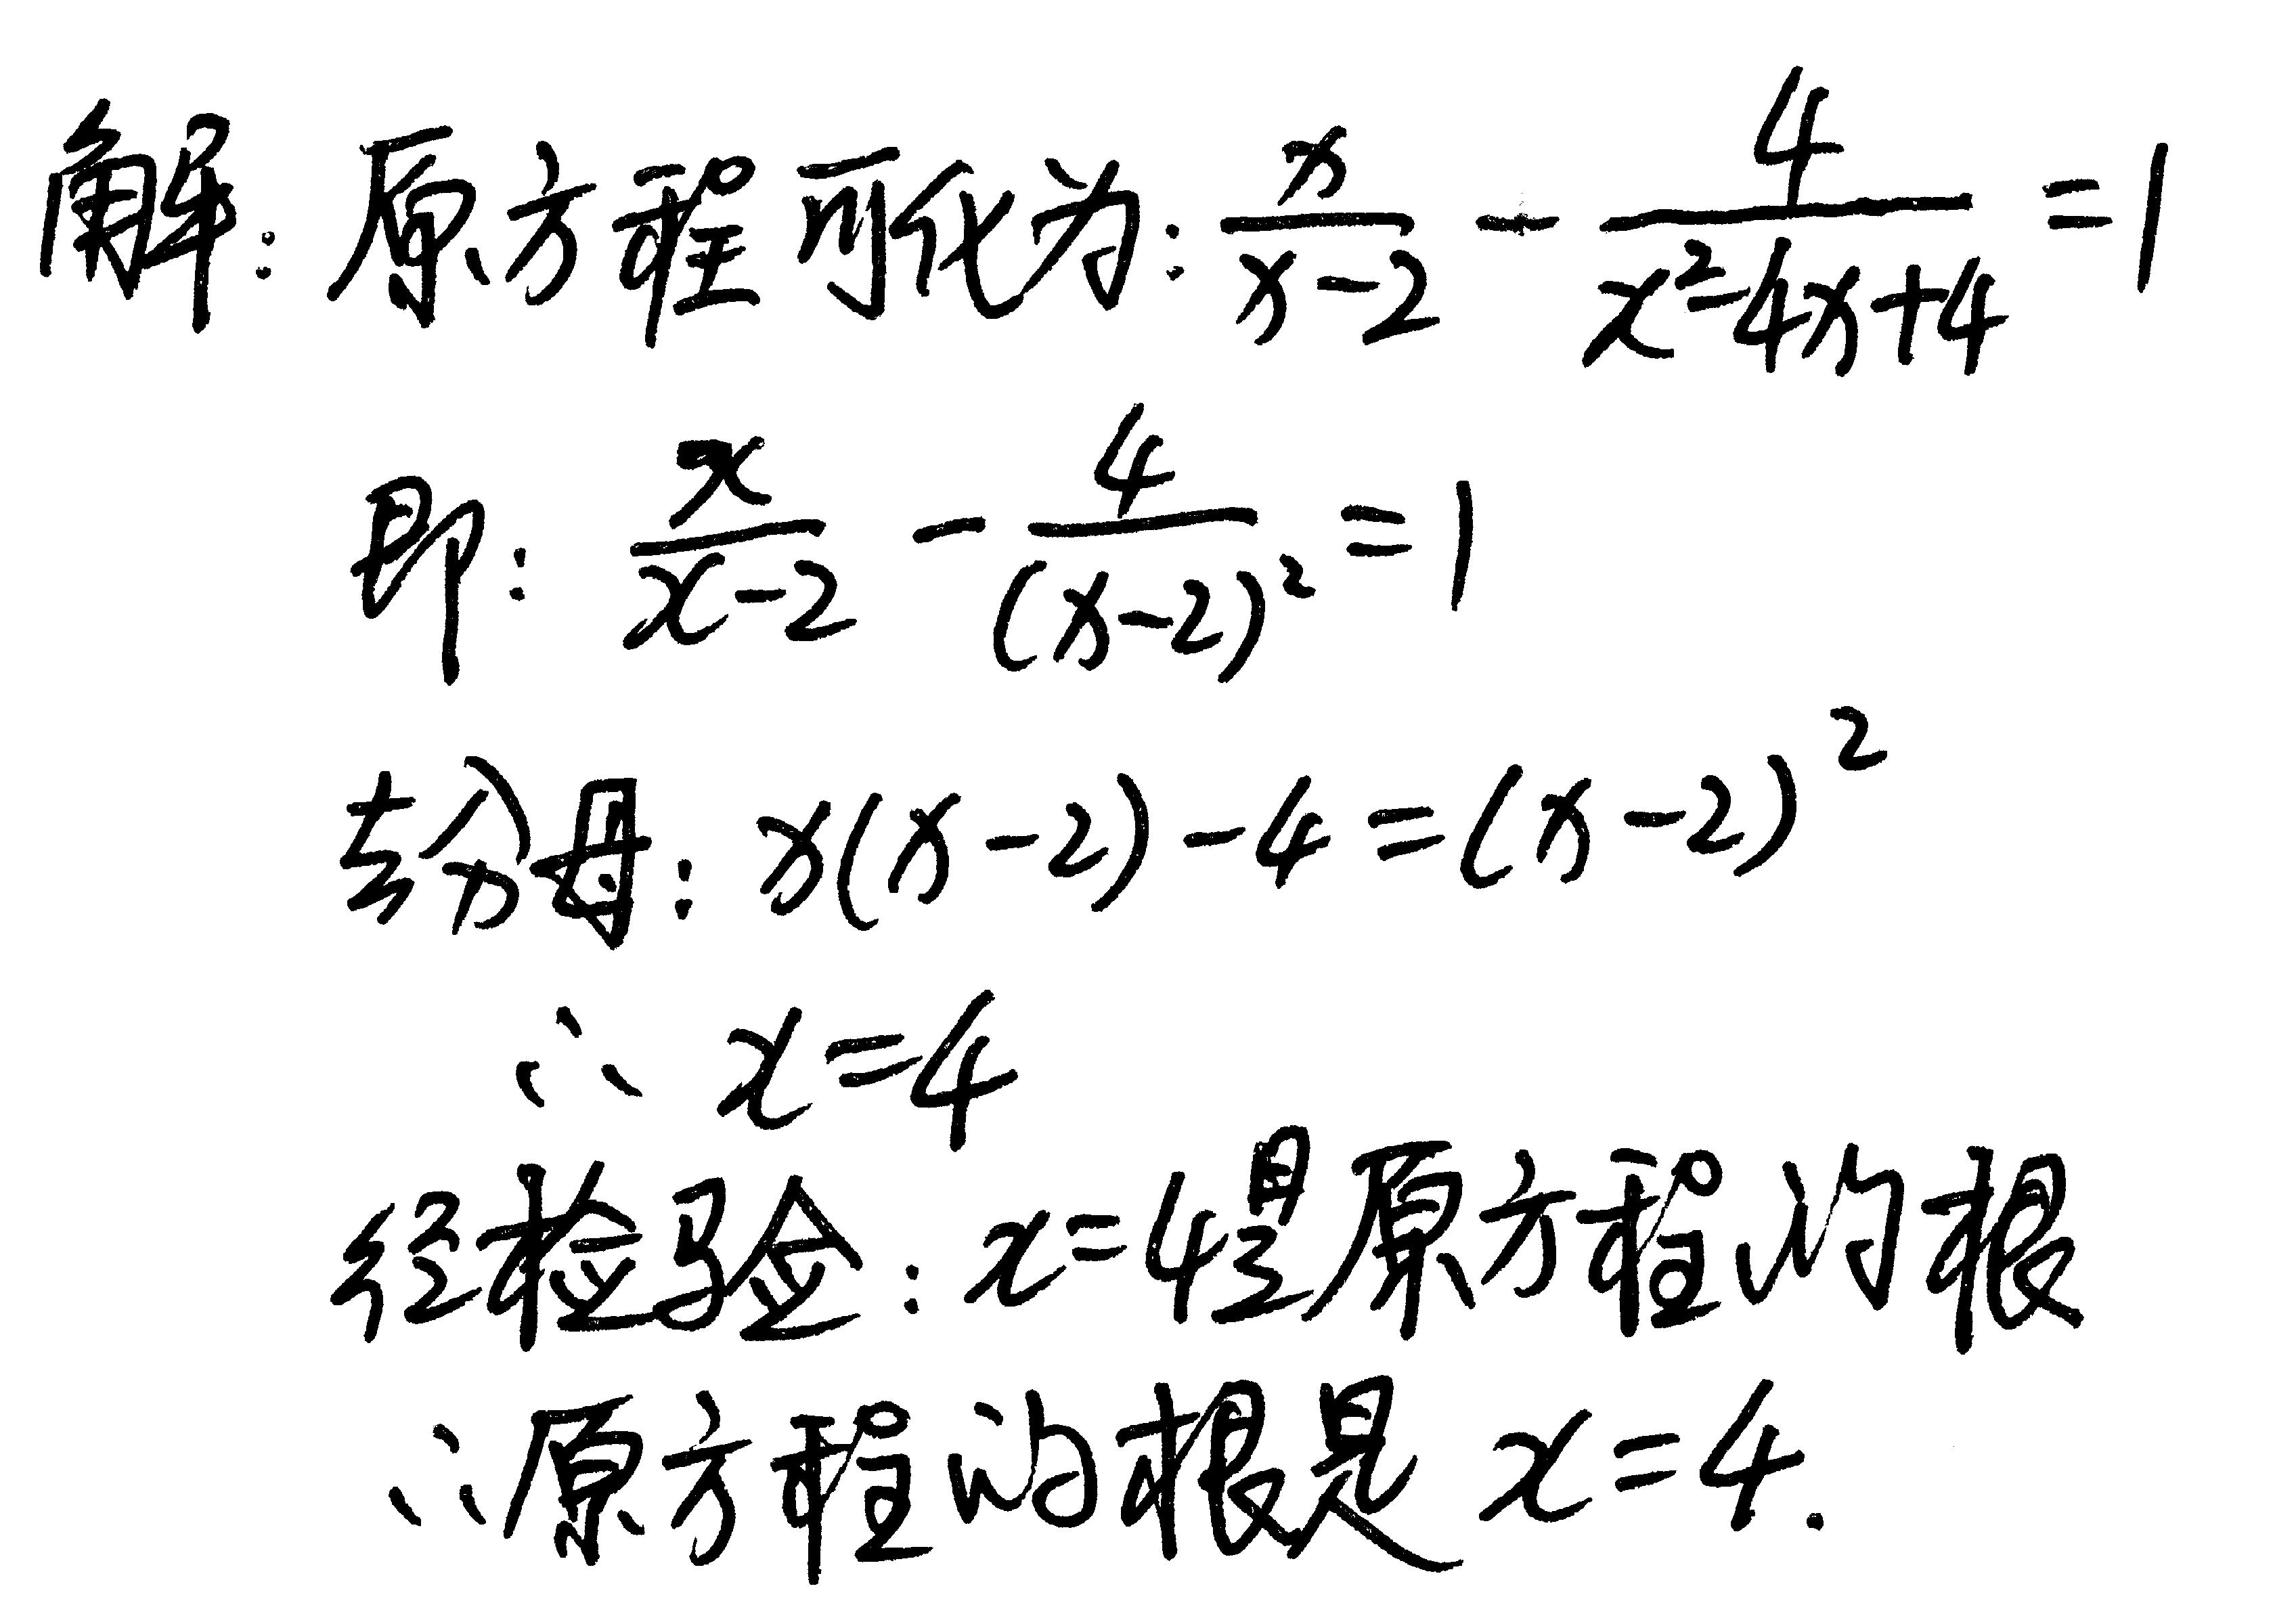 解：原方程可化为：$\frac{x}{x-2} - \frac{4}{x^2-4x+4} = 1$
即：$\frac{x}{x-2} - \frac{4}{(x-2)^2} = 1$
去分母：$x(x-2)-4=(x-2)^2$
∴ $x=4$
经检验：$x=4$是原方程的根
∴原方程的根是 $x=4$.